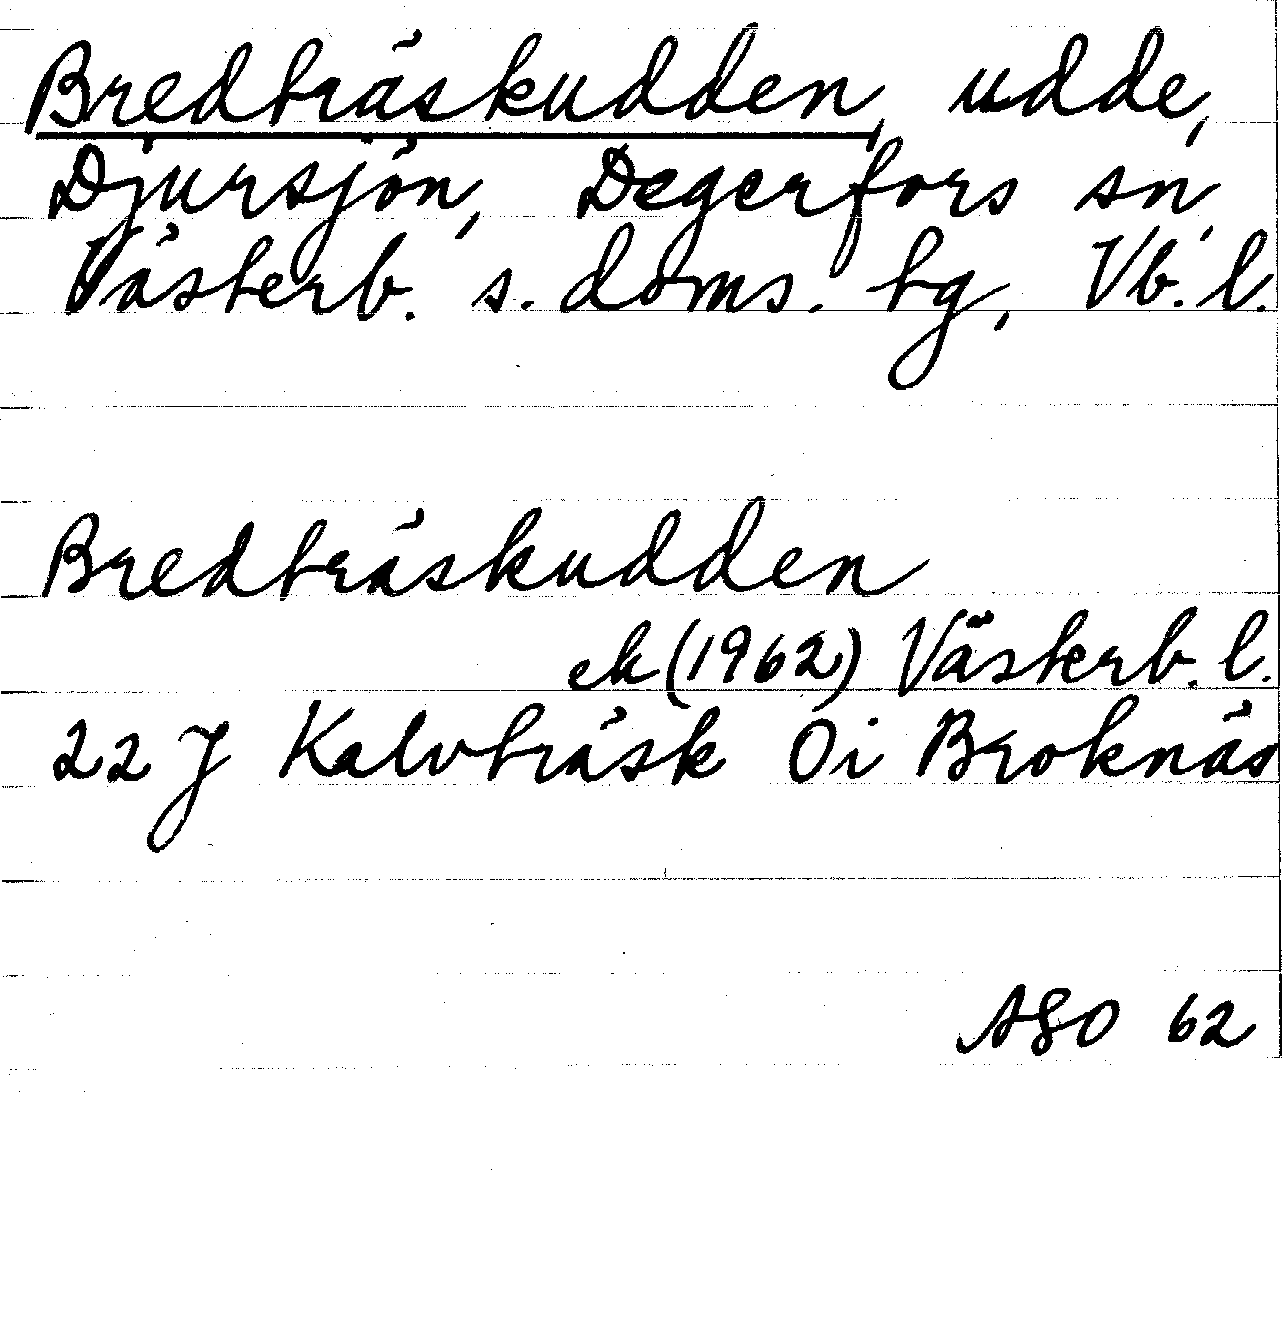 Bredträskudden, udde,
Djursjön, Degerfors sn,
Västerb. s. doms. tg, Vb. l.
Bredträskudden
ek (1962) Västerb. l.
22 J Kalvträsk 0i Broknäs
ASO 62